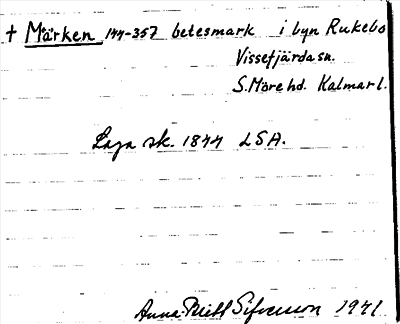 † Märken 144-357 betesmark i byn Rukebo
Vissefjärda sn.
S. Möre hd. Kalmar l.
Laga sk. 1844 LSA.
Anna-Britt Sifvesson 1941